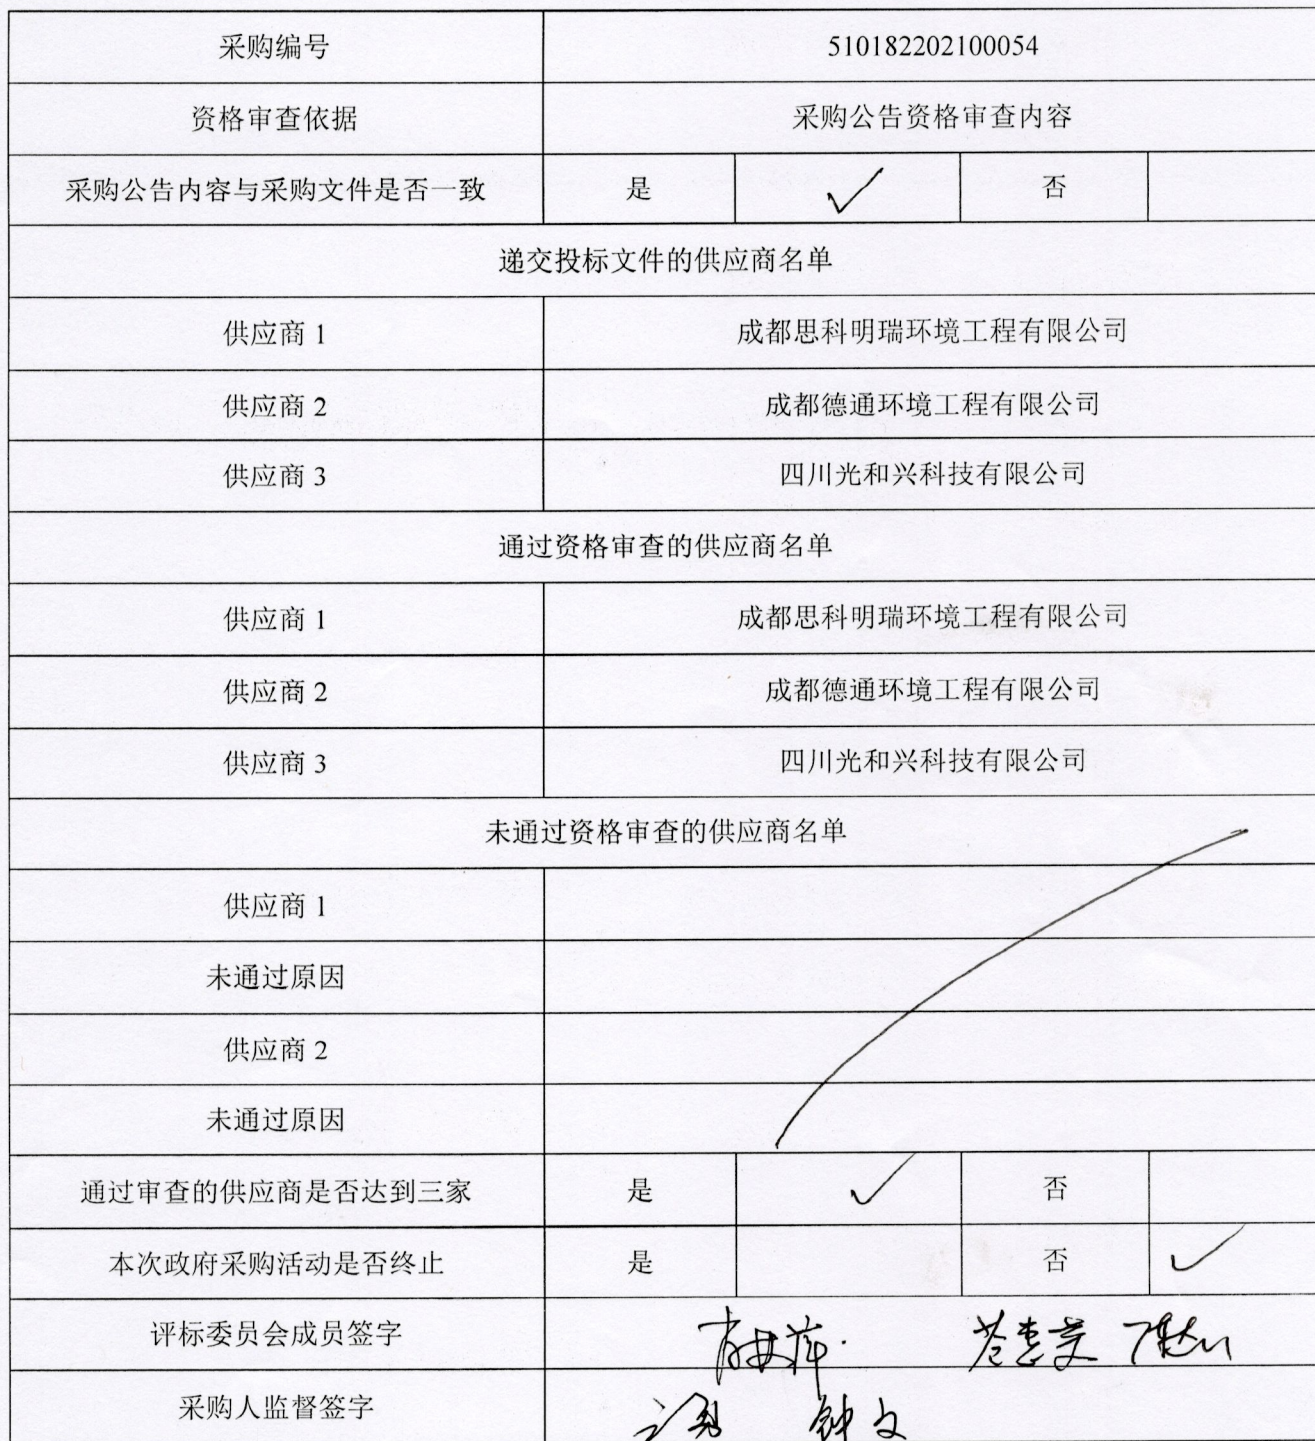 采购编号 510182202100054
资格审查依据 采购公告资格审查内容
采购公告内容与采购文件是否一致 是 ✓ 否
递交投标文件的供应商名单
供应商 1 成都思科明瑞环境工程有限公司
供应商 2 成都德通环境工程有限公司
供应商 3 四川光和兴科技有限公司
通过资格审查的供应商名单
供应商 1 成都思科明瑞环境工程有限公司
供应商 2 成都德通环境工程有限公司
供应商 3 四川光和兴科技有限公司
未通过资格审查的供应商名单
供应商 1
未通过原因
供应商 2
未通过原因
通过审查的供应商是否达到三家 是 ✓ 否
本次政府采购活动是否终止 是 否 ✓
评标委员会成员签字
采购人监督签字